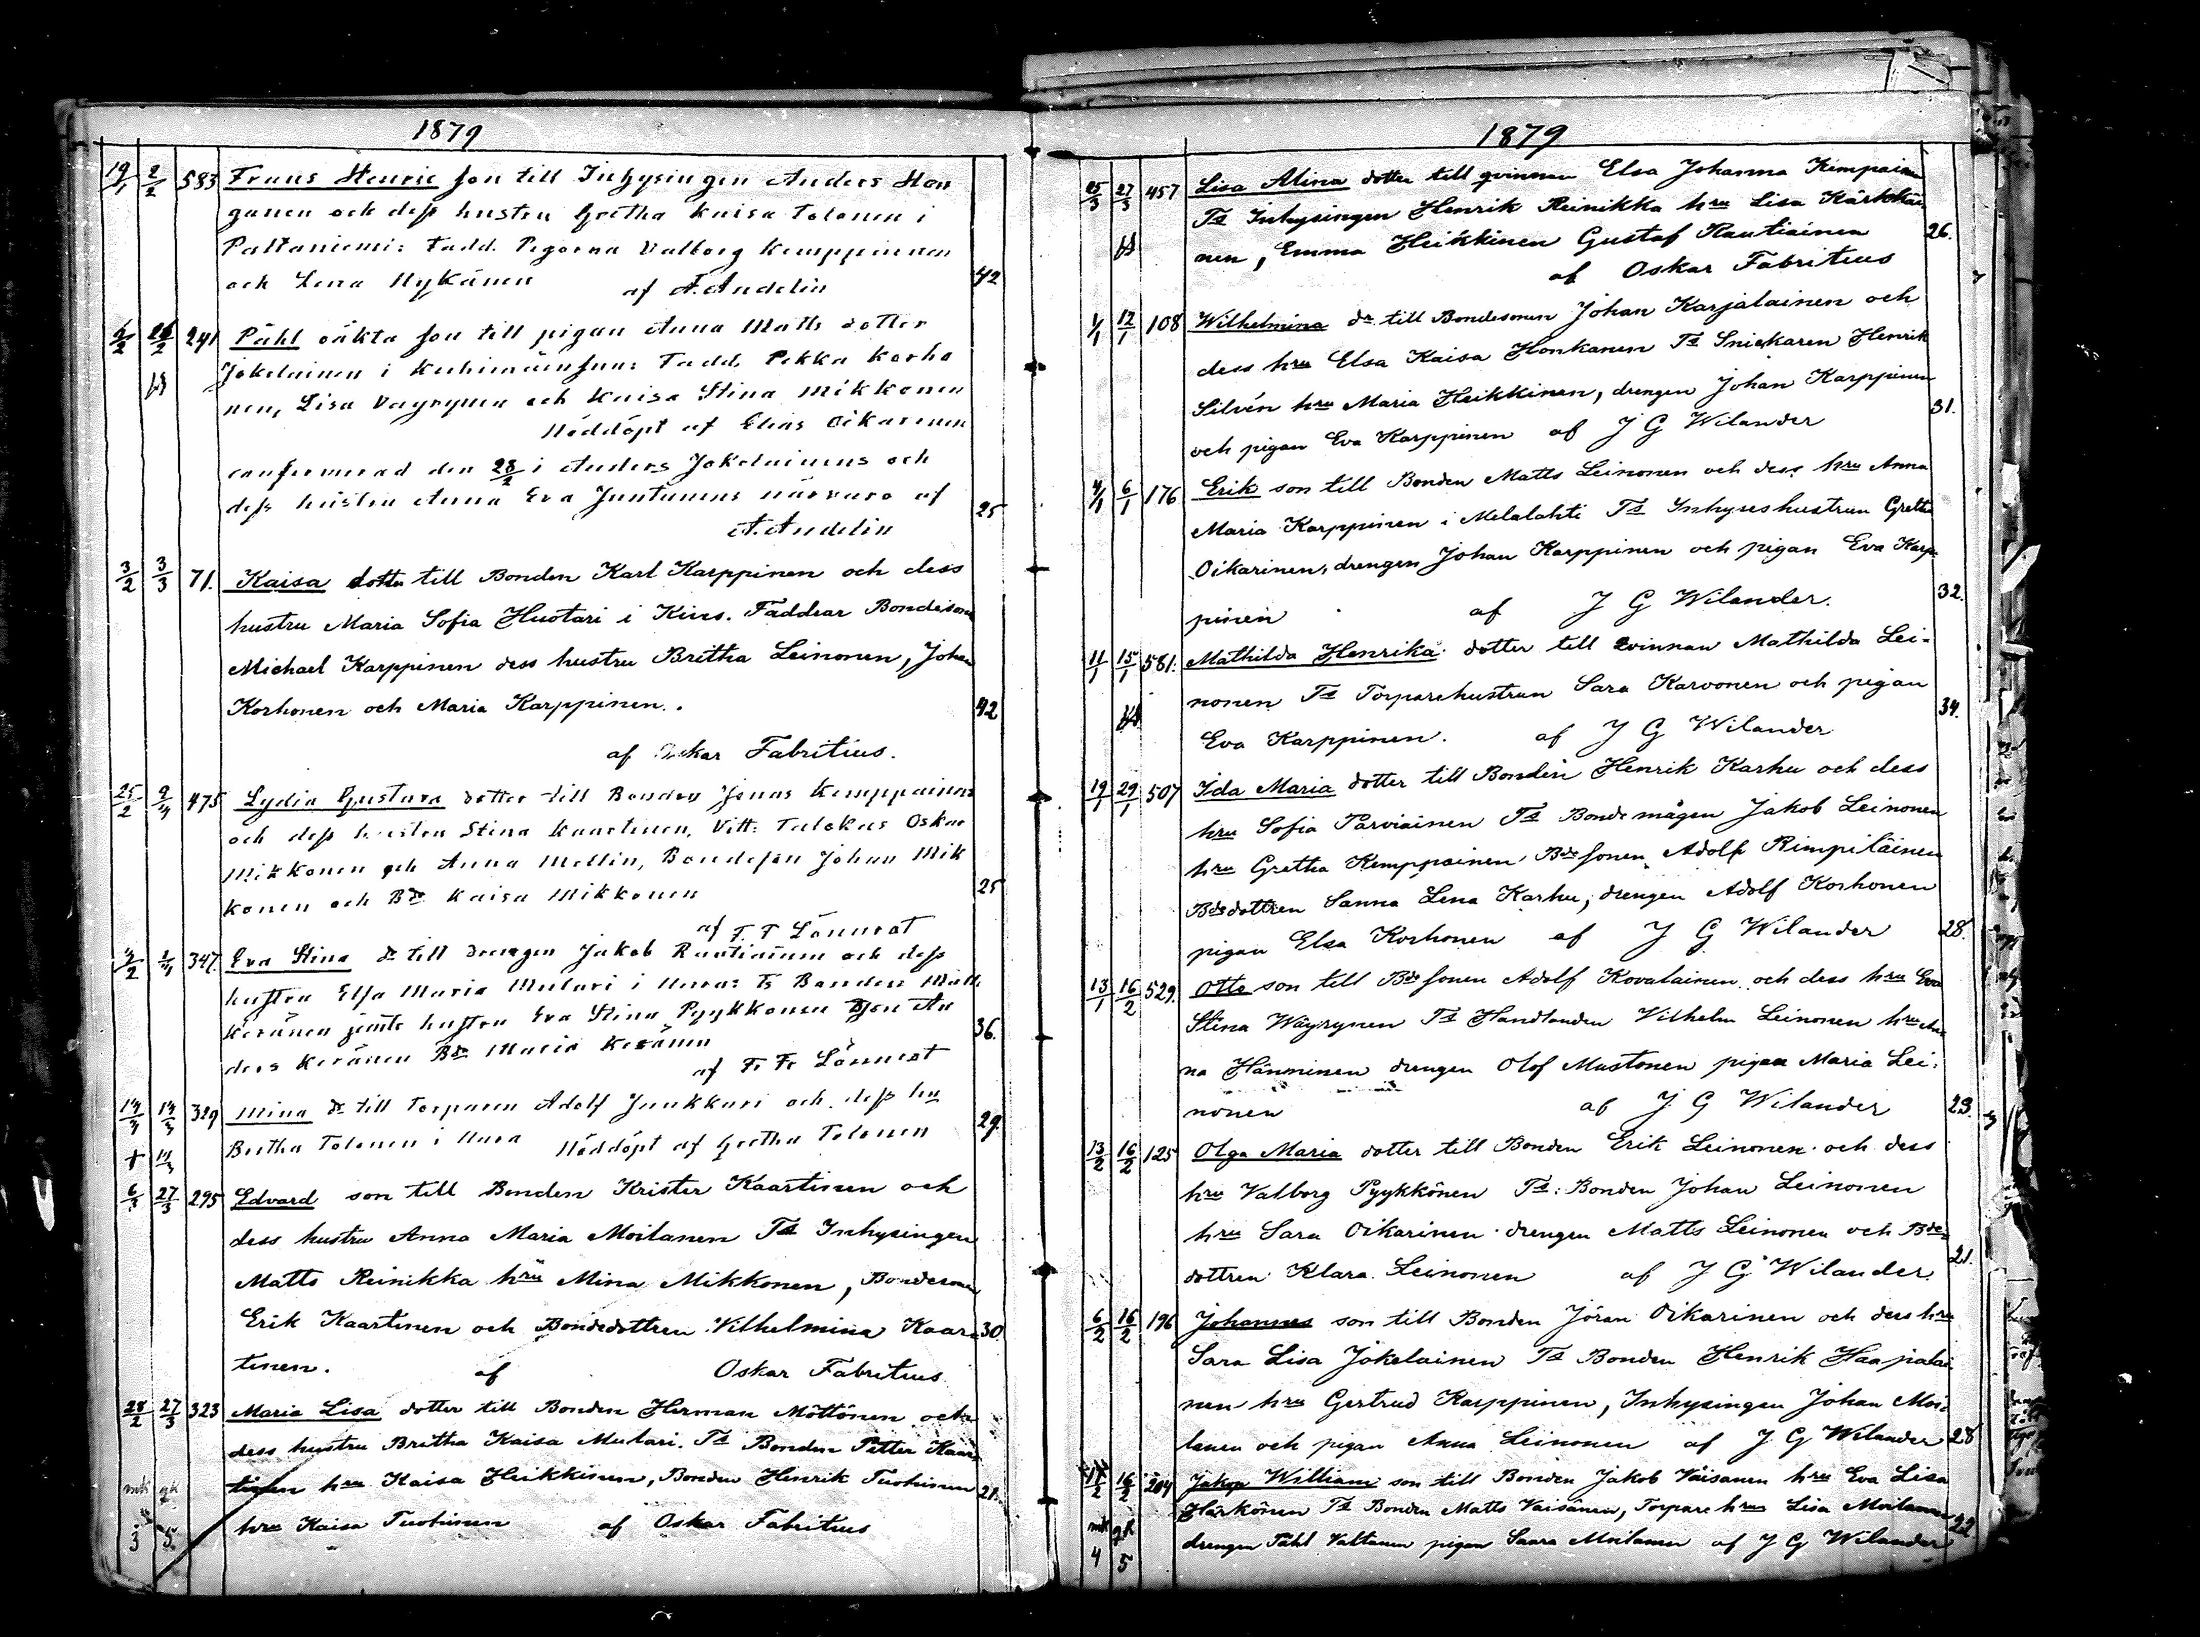 1879
19/1 2/2 583 Frans Henric son till Inhysingen Anders Hon
ganen och dess hustru Gretha Kaisa Tolonen i
Paltaniemi: Fadd. Pigorna Valborg Kemppainen
och Lena Mykänen af A. Andelin 42
241 Påhl oäkta son till pigan Anna Matts dotter
Jokelainen i Fadd. Pekka Korho
nen, Lisa Väyrynen och Kaisa Stina Mikkonen
Nöddöpt af Elias Oikarinen
confirmerad den 28/2 i Anders Jokelainens och
dess hustru Anna Eva Juntunens närvaro af 25
A. Andelin
3/2 3/3 71. Kaisa dotter till Bonden Karl Karppinen och dess
hustru Maria Sofia Huotari i Kius. Faddrar Bondeson
Michael Karppinen dess hustru Britha Leinonen, Johan
Korhonen och Maria Karppinen. 42
af Oskar Fabritius.
25/2 475 Lydia Gustava dotter till Bonden Jonas Kemppainen
och dess hustru Stina Kaartinen, Vitt: Oskar
Mikkonen och Anna Mellin, Bondesån Johan Mik
konen och Bdr Kaisa Mikkonen 25
af F. F. Lönnrot
347 Eva Stina dr till drengen Jakob Rautiainen och dess
hustru Elsa Maria Mulari i Uura: Ts Bonden Matts
Keränen jemte hustru Eva Stina Pyykkönen Bson An
ders Keränen Bdr Maria Keränen 36.
af F. F. Lönnrot
14/3 14/3 329 Mina dr till Torparen Adolf Junkkari och dess hu
Britha Tolonen i Uura Nöddöpt af Gretha Tolonen 29.
6/3 27/3 295 Edvard son till Bonden Krister Kaartinen och
dess hustru Anna Maria Moilanen Ts Inhysingen
Matts Reinikka hru Mina Mikkonen, Bondeson
Erik Kaartinen och Bondedottren Vilhelmina Kaar- 30.
tinen. af Oskar Fabritius
28/2 27/3 323 Maria Lisa dotter till Bonden Herman Möttönen och
dess hustru Britha Kaisa Mulari. Ts Bonden Petter Kaar
tinen hru Kaisa Heikkinen, Bonden Hinrik Tuohinen 21.
hru Kaisa Tuohinen af Oskar Fabritius
mk gk
3 5.
1879
25/3 27/3 457 Lisa Alina dotter till qvinnan Elsa Johanna Kempainen
Ts Inhysingen Henrik Reinikka hru Lisa Kärkkäi
nen, Emma Heikkinen Gustaf Rautiainen 26.
af Oskar Fabritius
1/1 12/1 108 Wilhelmina dr till Bondesonen Johan Karjalainen och
dess hru Elsa Kaisa Honkanen Ts Snickaren Henrik
Silvén hru Maria Heikkinen, drengen Johan Karppinen 31.
och pigan Eva Karppinen af J G Wilander
4/1 6/1 176 Erik son till Bonden Matts Leinonen och dess hru Anna
Maria Karppinen i Melalahti Ts Inhyseshustrun Gretha
Oikarinen, drengen Johan Karppinen och pigan Eva Karp
pinen af J G Wilander. 32.
11/1 15/1 581. Mathilda Henrika dotter till qvinnan Mathilda Lei-
nonen Ts Torparehustrun Sara Karvonen och pigan 34.
Eva Karppinen. af J G Wilander
19/1 29/1 507 Ida Maria dotter till Bonden Henrik Karhu och dess
hru Sofia Parviainen Ts Bonde mågen Jakob Leinonen
hru Gretha Kemppainen, Bdesonen Adolf Rimpiläinen
Bdedottren Sanna Lena Karhu, drengen Adolf Korhonen
pigan Elsa Korhonen af J G Wilander 28.
13/1 16/2 529. Otto son till Bdesonen Adolf Kovalainen och dess hru Eva
Stina Wäyrynen Ts Handlanden Vilhelm Leinonen hru An
na Hänninen drengen Olof Mustonen pigan Maria Lei-
nonen af J G Wilander 23.
13/2 16/2 125 Olga Maria dotter till Bonden Erik Leinonen och dess
hru Valborg Pyykkönen Ts: Bonden Johan Leinonen
hru Sara Oikarinen drengen Matts Leinonen och Bde-
dottren Klara Leinonen af J G Wilander. 21.
6/2 16/2 196 Johannes son till Bonden Jöran Oikarinen och dess hru
Sara Lisa Jokelainen Ts Bonden Henrik Haapalai
nen hru Gertrud Karppinen, Inhysingen Johan Moi-
lanen och pigan Anna Leinonen af J G Wilander 28
16/2 204 William son till Bonden Jakob Väisänen hru Eva Lisa
Härkönen Ts Bonden Matts Väisänen, Torpare hru Lisa Moilanen
drengen Påhl Valtanen pigan Saara Moilanen af J G Wilander 22
mk gk
4 5